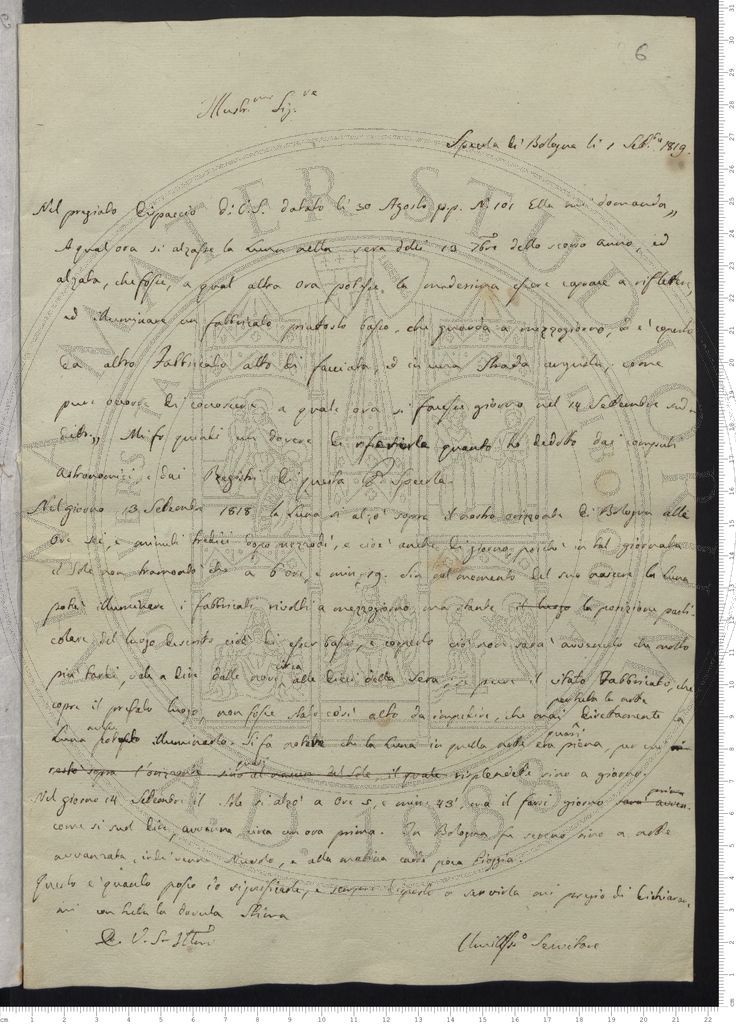 6
Illustr.mo Sig.re
Specola di Bologna li 1 Set.e 1819.
Nel pregiato dispaccio di V.S. datato li 30 Agosto p.p. N. 101 Ella mi domanda „
A qual ora si alzasse la Luna nella sera delli 13 7bre dello scorso anno, ed
alzata, che fosse, a qual altra ora potesse la medesima essere capace a riflettere,
ed illuminare un fabbricato piuttosto basso, che guarda a mezzogiorno, ed è coperto
da altro Fabbricato alto di facciata, ed in una Strada angusta: come
pure occorre di conoscere a quale ora si facesse giorno nel 14 Settembre sud-
detto „ Mi fo quindi un dovere di riferirle quanto ho dedotto dai computi
Astronomici e dai Registri di questa Specola.
Nel giorno 13 Settembre 1818 la Luna si alzò sopra il nostro orizonte di Bologna alle
Ore sei, e minuti tredici dopo mezzodì, e cioè anche di giorno, poichè in tal giornata
il Sole non tramontò che a 6 ore, e min. 19. Sin dal momento del suo nascere la Luna
potè illuminare i fabbricati rivolti a mezzogiorno, ma stante il luogo la posizione parti-
colare del luogo descritto cioè di esser basso, e coperto ciò non sarà avvenuto che molto
più tardi, vale a dire dalle nove circa alle dieci della Sera, se pure il citato Fabbricato, che
copre il prefato luogo, non fosse stato così alto da impedire, che mai per tutta la notte direttamente la
Luna avesse potuto illuminarlo. Si fa notare che la Luna in quella notte era quasi piena, per cui
restò sopra l'orizzonte sino al nascer del Sole, il quale risplendette quasi sino a giorno.
Nel giorno 14 Settembre il Sole si alzò a Ore 5, e min. 43', ed il farsi giorno prima
come si suol dire, avvenne circa un ora prima. In Bologna fu sereno sino a notte
avvanzata, indi venne Nuvolo, e alla mattina cadde poca Pioggia.
Questo è quanto posso io significarle, e sempre disposto a servirla mi pregio di dichiarar-
mi con tutta la dovuta Stima
D. V. S. Ill.ma
Umiliss.o Servitore